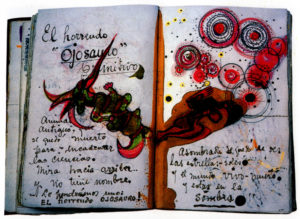 El horrendo
"OJOSAURO"
primitivo
Animal
Antiguo,
se quedó muerto
para encadenar
las ciencias.
Mira hacia arriba..
Y NO tiene nombre.
Le pondremos uno:
EL horrendo OJOSAURO!
Asombrada se quedó de ver
las estrellas-soles
y el mundo vivo-muerto
y estar en la
sombra